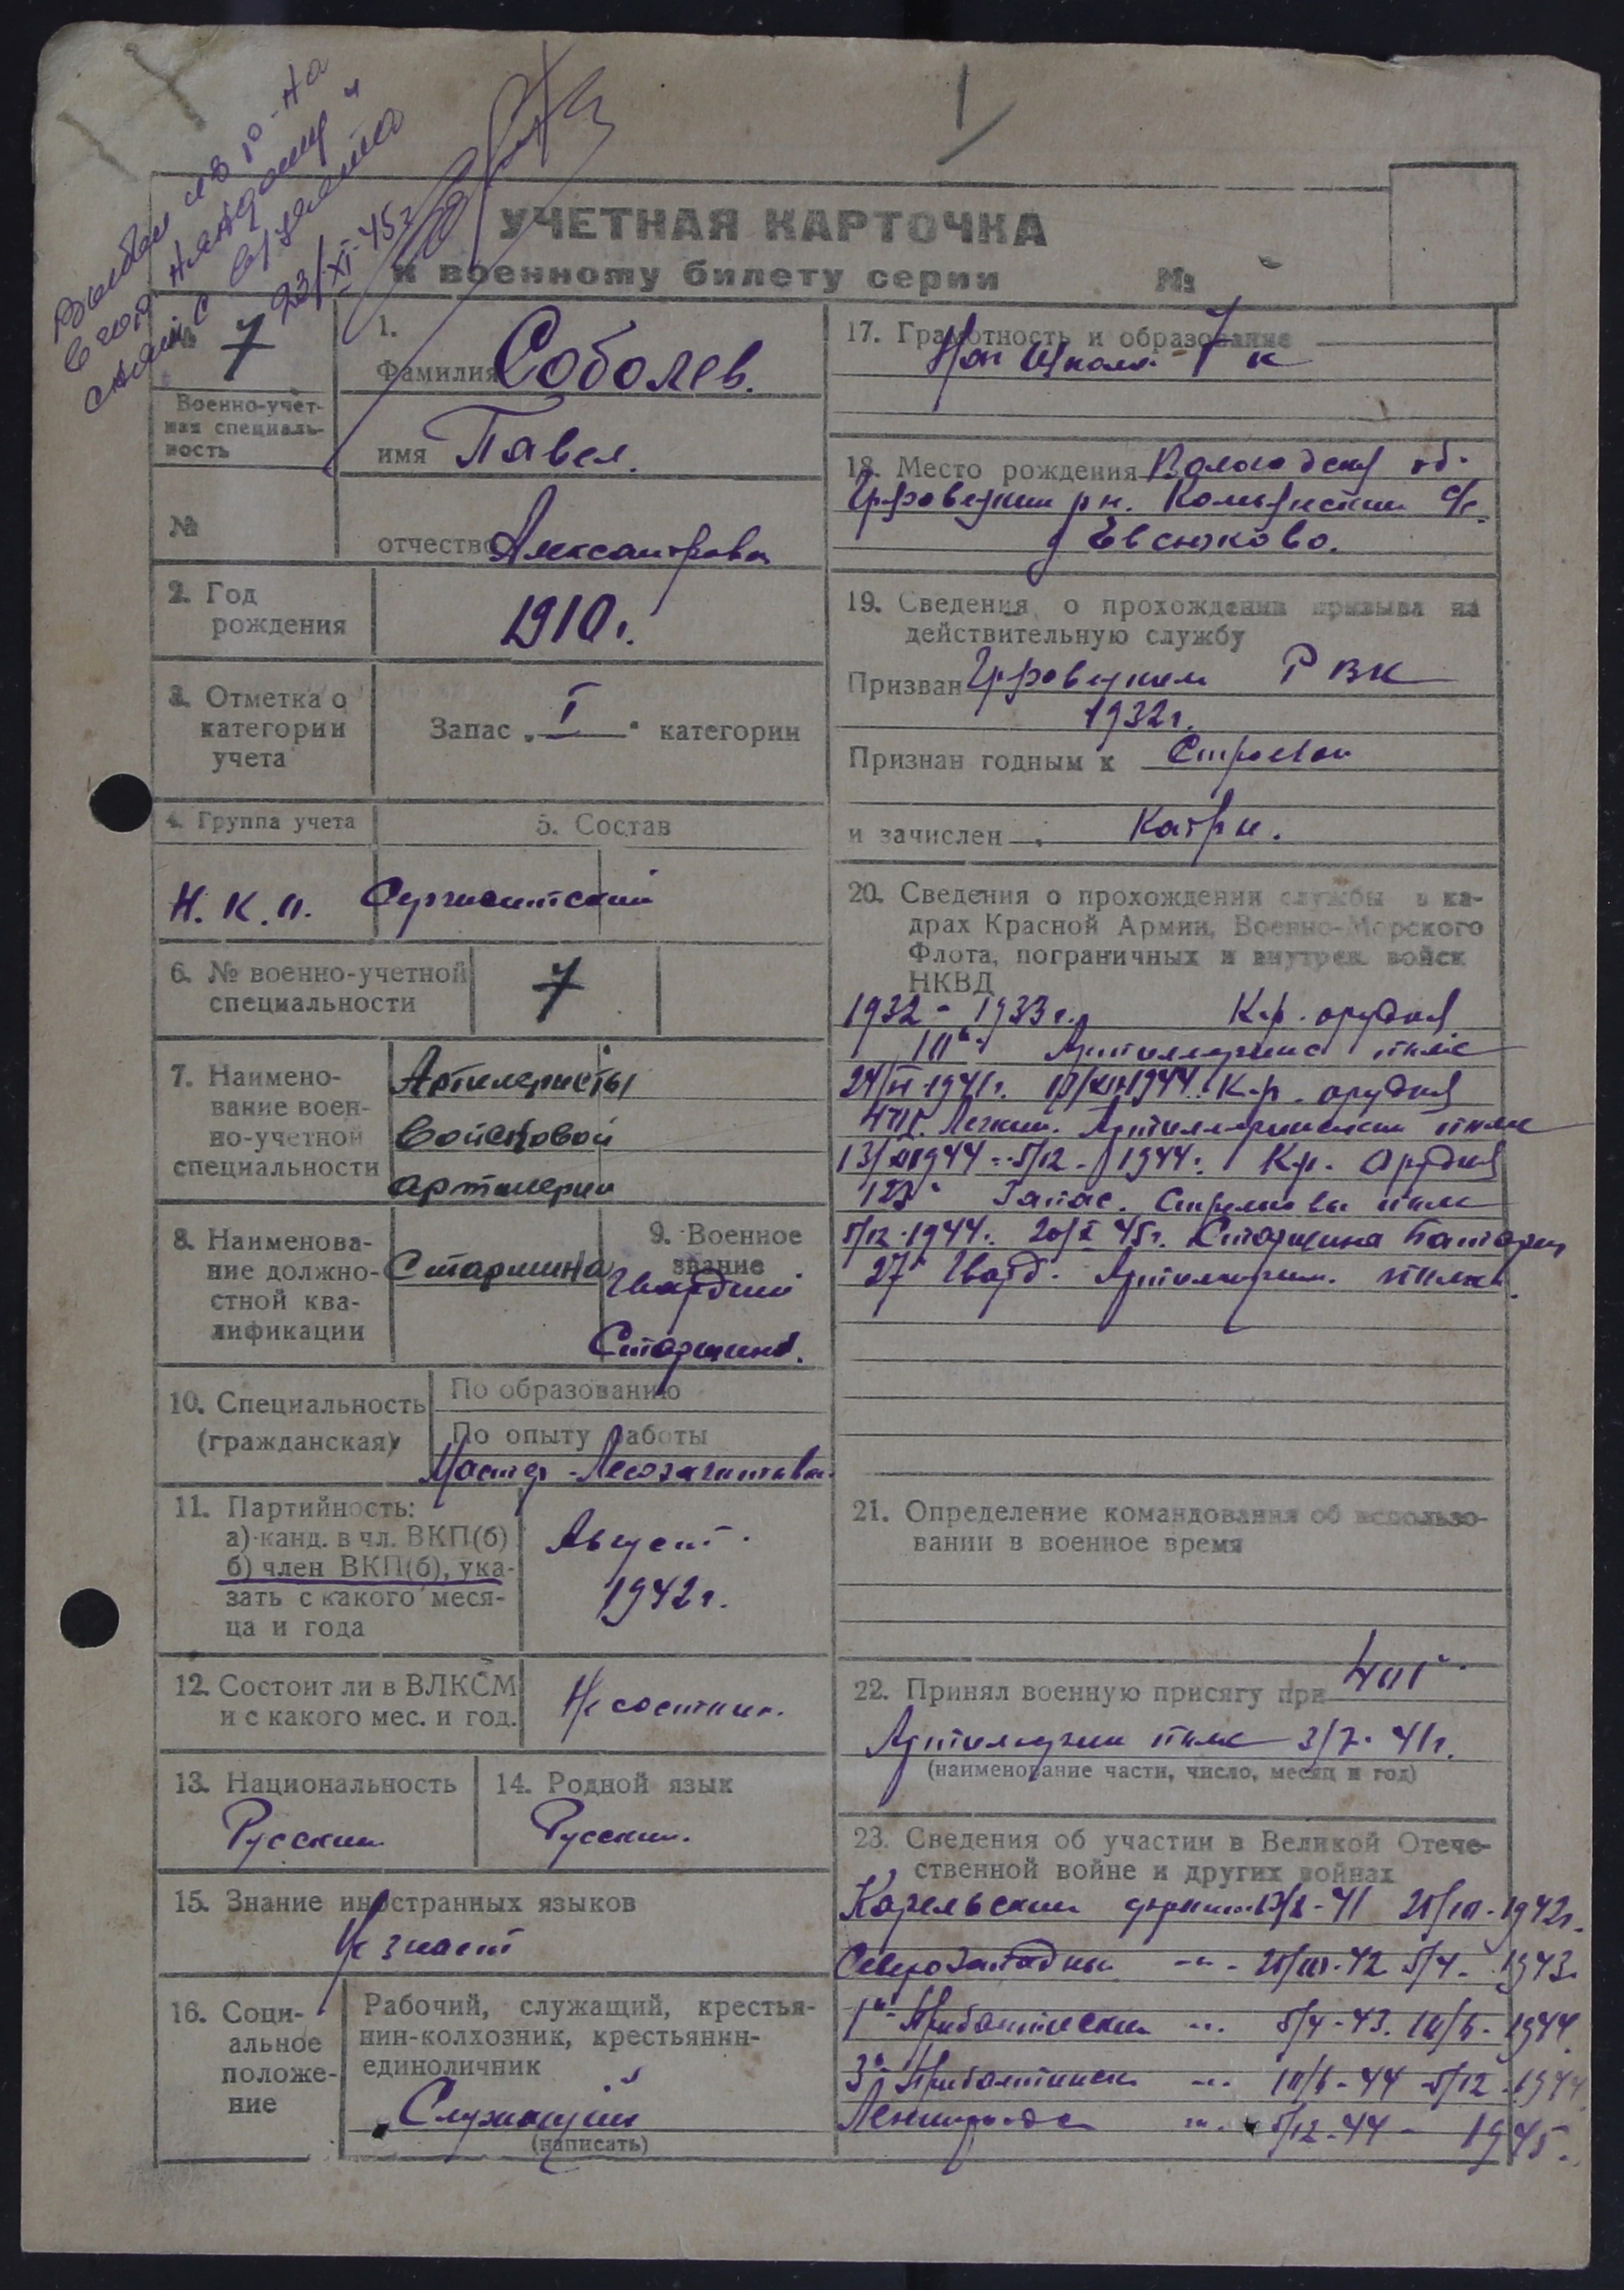 Выбыл из р-на
в гор. Няндому и
снят с в/учета
23/XI-45г
УЧЕТНАЯ КАРТОЧКА
к военному билету серии №
№ 7
Военно-учет-
ная специаль-
ность
№
1.
Фамилия Соболев.
имя Павел.
отчество
2. Год
рождения
1910г.
3. Отметка о
категории
учета
Запас „ I “ категории
4. Группа учета
5. Состав
Н.К.О. Сержантский
6. № военно-учетной
специальности
7
7. Наимено-
вание воен-
но-учетной
специальности
Артилеристы
войсковой
артилерии
8. Наименова-
ние должно-
стной ква-
лификации
Старшина
9. Военное
звание
Гвардии
Старшина.
10. Специальность
(гражданская)
По образованию
По опыту работы
Мастер -
11. Партийность:
а) канд. в чл. ВКП(б)
б) член ВКП(б), ука-
зать с какого меся-
ца и года
Август
1942г.
12. Состоит ли в ВЛКСМ
и с какого мес. и год.
Не состоит.
13. Национальность
Русский
14. Родной язык
Русский.
15. Знание иностранных языков
Не знает
16. Соци-
альное
положе-
ние
Рабочий, служащий, крестья-
нин-колхозник, крестьянин-
единоличник
Служащий
(написать)
17. Грамотность и образование
Нач школа 7 к
18. Место рождения Вологодская об.
рн. с/с.
д Евсюково.
19. Сведения о прохождении призыва на
действительную службу
Призван РВК
1932г.
Признан годным к Строевой
и зачислен
20. Сведения о прохождении службы в ка-
драх Красной Армии, Военно-Морского
Флота, пограничных и внутрен. войск
НКВД
1932 - 1933г. К-р. орудия
Артиллерийс полк
1941г. 1944 К-р. орудия
Легким. Артиллерийском полк
1944 - 5/12 - 1944г. К-р. орудия
Запас. Стрелковы полк
5/12-1944г. 45г. Старшина Батареи
27 Гвард. Артиллерийс. полка.
21. Определение командования об использо-
вании в военное время
22. Принял военную присягу при
Артиллерии полк 3/7-41г.
(наименование части, число, месяц и год)
23. Сведения об участии в Великой Отече-
ственной войне и других войнах
Карельский фронт 1942г.
Северозападны -"- 5/4 - 1943.
1й Прибалтийский -"- 5/4-43. 1944
3й Прибалтийск -"- 44 5/12-1944
Ленинградс -"- 5/12-44 - 1945.